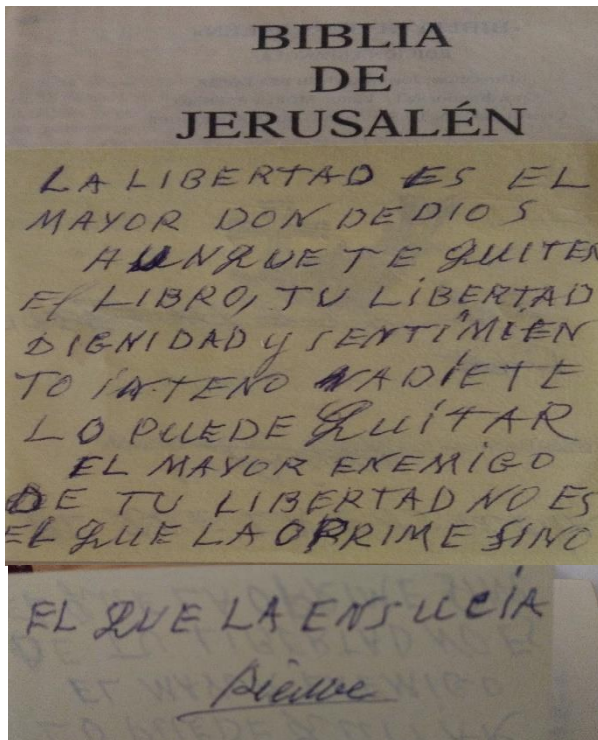 BIBLIA
DE
JERUSALÉN
LA LIBERTAD ES EL
MAYOR DON DE DIOS
AUNQUE TE QUITEN
El LIBRO, TU LIBERTAD
DIGNIDAD y SENTIMIEN
TO NADIE TE
LO PUEDE QUITAR
EL MAYOR ENEMIGO
DE TU LIBERTAD NO ES
EL QUE LA OPRIME SINO
EL QUE LA ENSUCIA